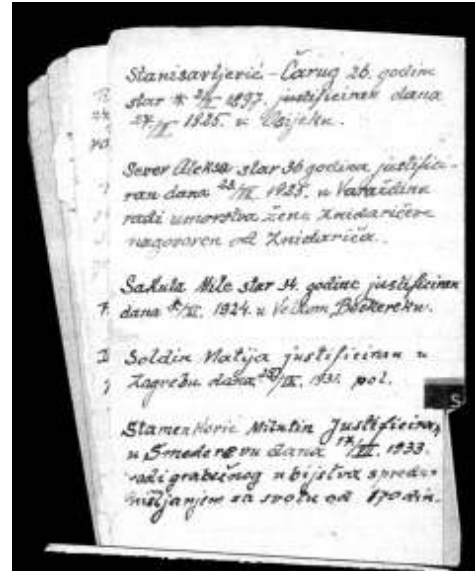 Stanisavljević - Čarug 26. godine
star * 2/I 1897. justificiran dana
27/II 1925. u Osijeku.
Sever Aleksa star 36 godina justifici-
ran dana 1925. u Varaždinu
radi umorstva žene Knidarićeve
nagovoren od Knidarića.
Sakuta Mile star 34. godine justificiran
dana 1924. u Velkom Bečkereku.
Soldin Matija justificiran u
Zagrebu dana /IX. 1931. pol.
Stamenković Milutin Justificiran
u Smederevu dana 17/ 1933.
radi grabežnog ubijstva spredu-
mišljanjem za svotu od 170 din.
S